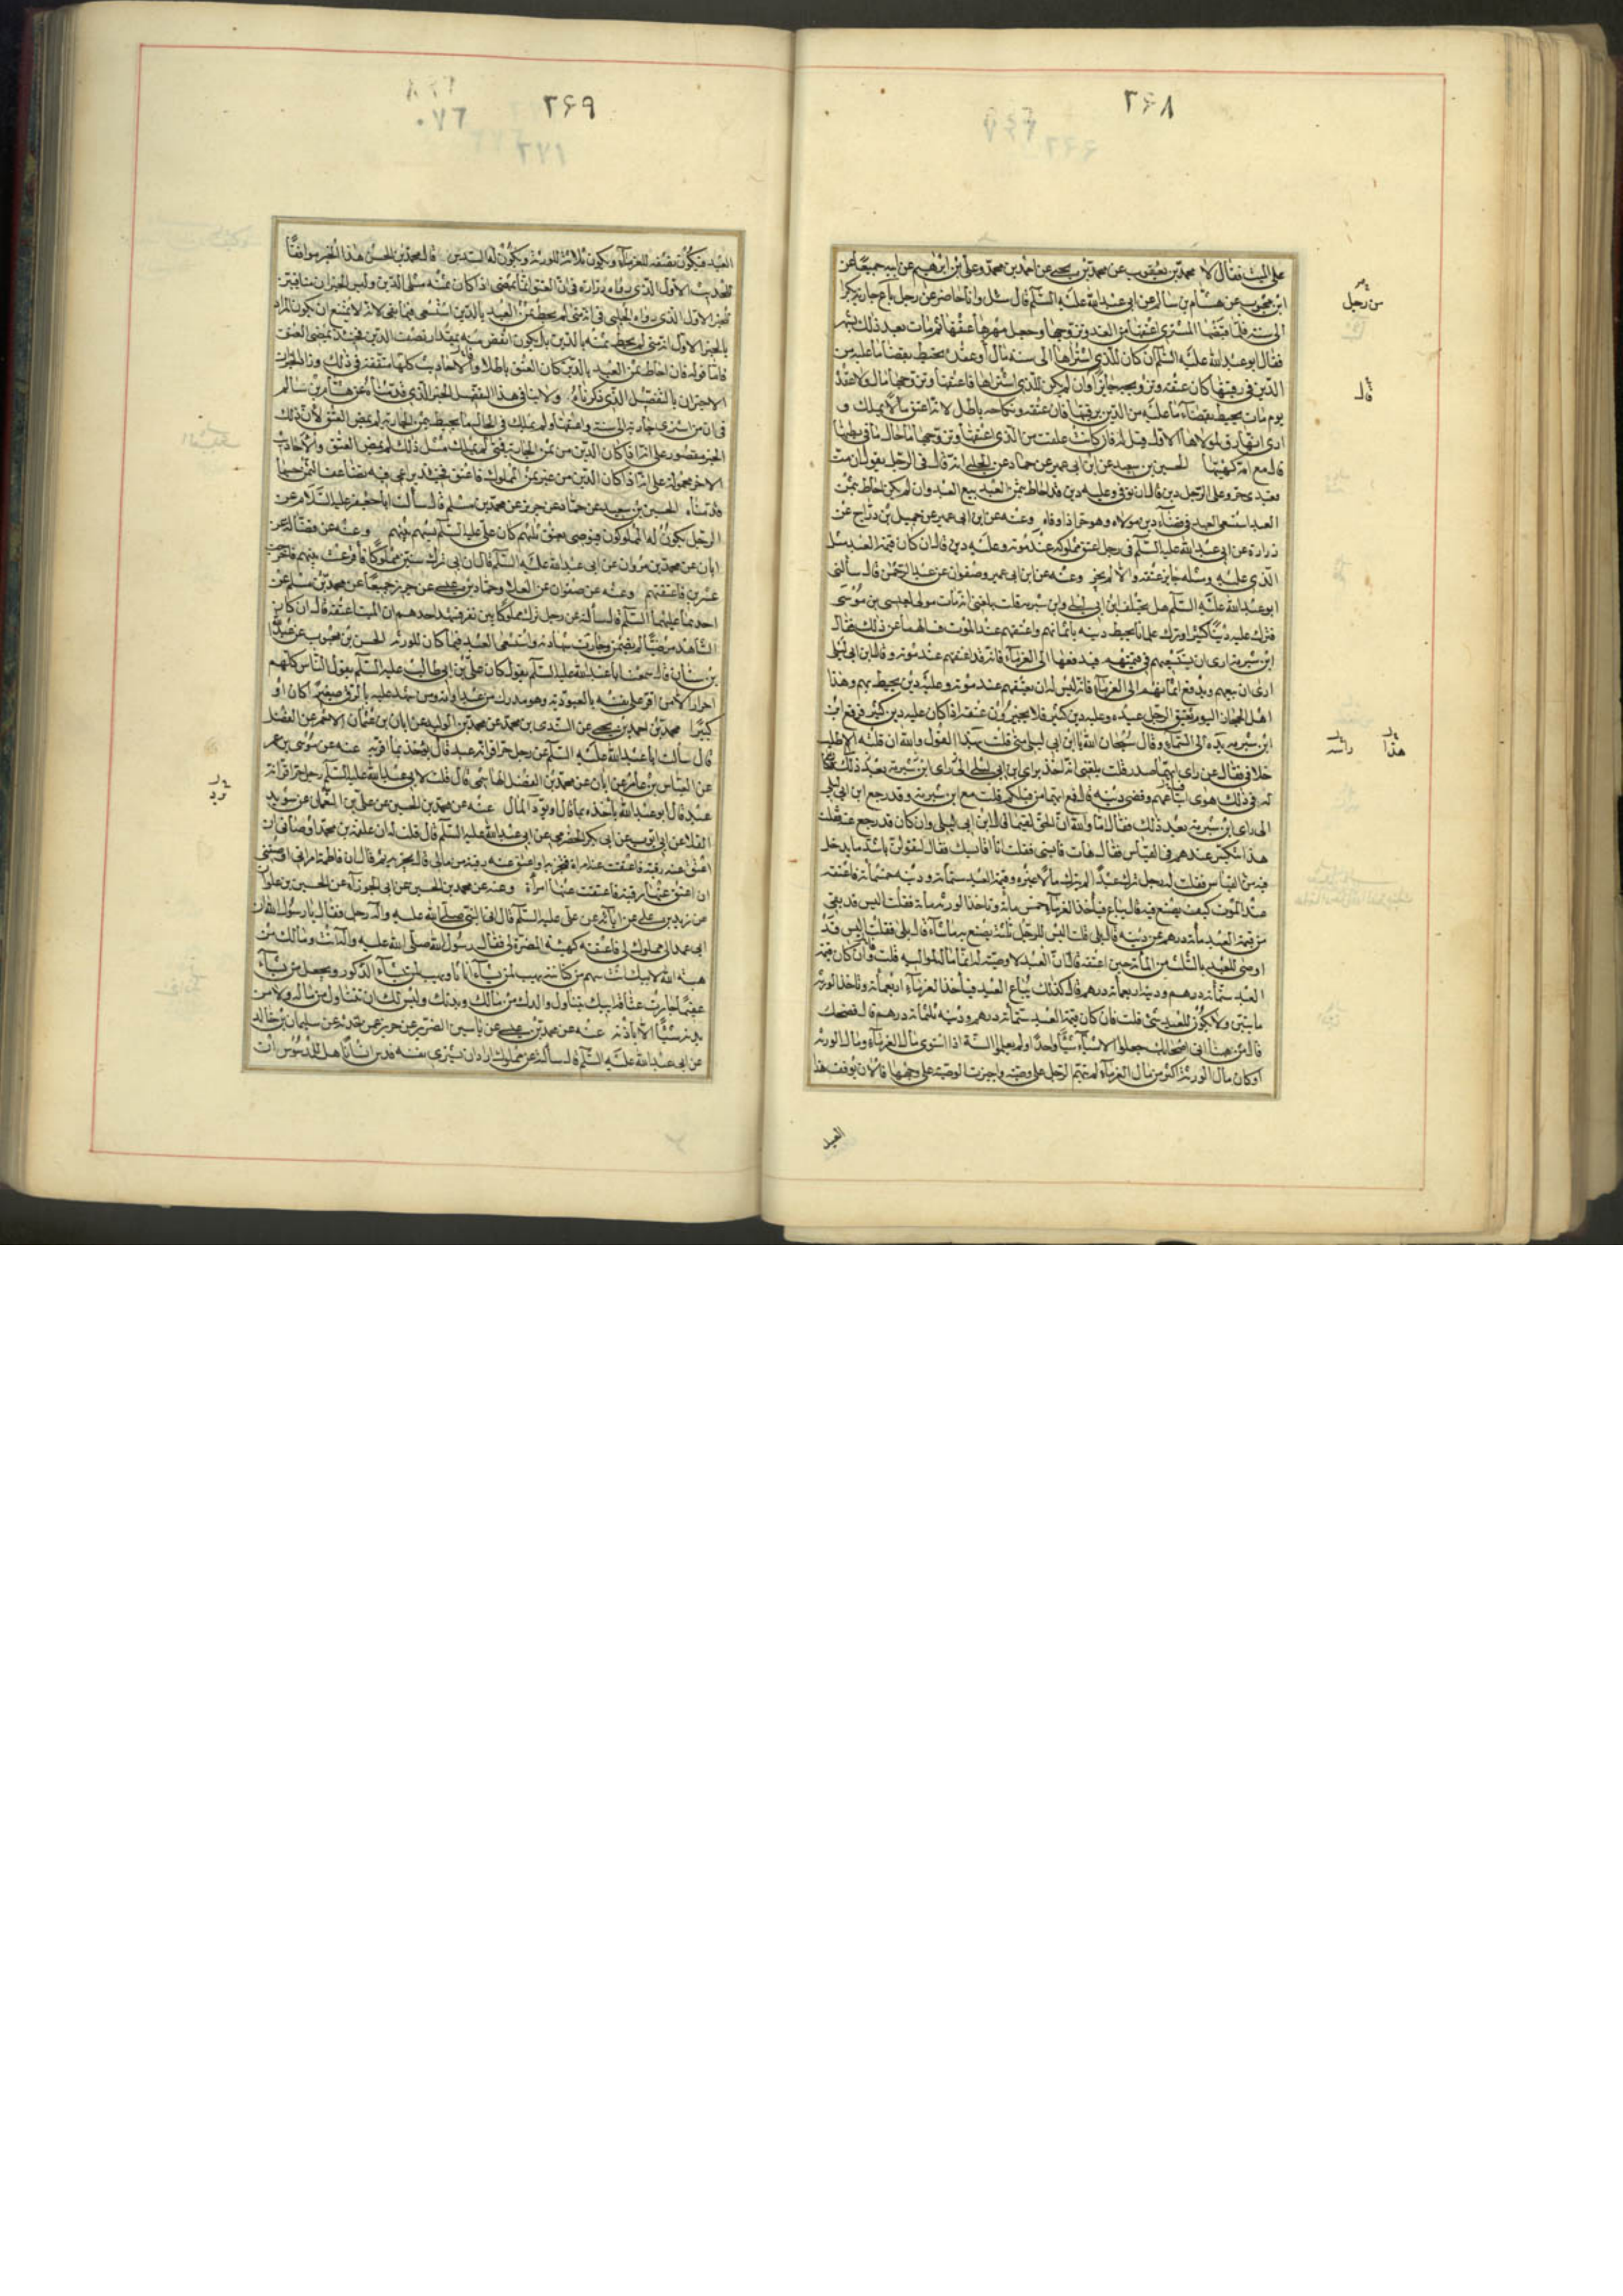 ٢٦٨
على الميت فقال لا محمد بن يعقوب عن محمد بن يحيى عن احمد بن محمد وعلى بن ابرهيم عن ابيه جميعا عن
ابن محبوب عن هشام بن سالم عن ابى عبد الله عليه السلم قال سئل وانا حاضر عن رجل باع جارية بكرا
الى سنة فلما قبضها المشترى اعتقها من الغد وتزوجها وجعل مهرها عتقها ثم مات بعد ذلك بشهر
فقال ابو عبد الله عليه السلم ان كان للذى اشتراها الى سنة مال او عقدة يحيط بقضاء ما عليه من
الدين فى رقبتها كان عتقه وتزويجه جايزا وان لم يكن للذى اشتراها فاعتقها وتزوجها مال ولا عقدة
يوم مات يحيط بقضاء ما عليه من الدين برقبتها فان عتقه ونكاحه باطل لانه اعتق ما لا يملك و
ارى انها رق لمولاها الاول قيل له فان كانت علقت من الذى اعتقها وتزوجها ما حال ما فى بطنها
قال مع امه كهيئتها الحسين بن سعيد عن ابن ابى عمير عن حماد عن الحلبى انه قال فى الرجل يقول ان مت
فعبدى حر وعلى الرجل دين قال ان توفى وعليه دين قد احاط بثمن العبد بيع العبد وان لم يكن احاط بثمن
العبد استسعى العبد فى قضاء دين مولاه وهو حر اذا وفاه وعنه عن ابن ابى عمير عن جميل بن دراج عن
زرارة عن ابى عبد الله عليه السلم فى رجل اعتق مملوكه عند موته وعليه دين قال ان كان قيمة العبد مثل
الذى عليه ومثله جايز عتقه والا لم يجز وعنه عن ابن ابى عمير وصفوان عن عبد الرحمن قال سألنى
ابو عبد الله عليه السلم هل يختلف ابن ابى ليلى وابن شبرمة فقلت بلغنى انه مات مولى لعيسى بن موسى
فترك عليه دينا كثيرا وترك غلمانا يحيط دينه باثمانهم واعتقهم عند الموت فسالهما عن ذلك فقال
ابن شبرمة ارى ان يستسعيهم فى قيمتهم فيدفعها الى الغرماء فانه قد اعتقهم عند موته وقال ابن ابى ليلى
ارى ان يبيعهم ويدفع اثمانهم الى الغرماء فانه ليس له ان يعتقهم عند موته وعليه دين يحيط بهم وهذا
اهل الحجاز اليوم يعتق الرجل عبده وعليه دين كثير فلا يجيزون عتقه اذا كان عليه دين كثير فرفع ابن
ابن شبرمة يده الى السماء وقال سبحان الله يا ابن ابى ليلى متى قلت بهذا القول والله ان قلته الا طلب
خلافى فقال عن راى ايهما صدر قلت بلغنى انه اخذ براى ابن ابى ليلى
له فى ذلك هوى فباعهم وقضى دينه قال فمع ايهما من قبلكم قلت مع ابن شبرمة وقد رجع ابن ابى ليلى
الى راى ابن شبرمة بعد ذلك فقال اما والله ان الحق لفيما قال ابن ابى ليلى وان كان قد رجع عنه فقلت
هذا ينكسر عندهم فى القياس فقال هات قايسنى فقلت انا اقايسك فقال لتقولن باشد ما يدخل
فيه من القياس فقلت له رجل ترك عبدا لم يترك مالا غيره وقيمة العبد ستمأة ودينه خمسمأة فاعتقه
عند الموت كيف يصنع فيه قال يباع فيأخذ الغرماء خمس مأة وتاخذ الورثة مأة فقلت اليس قد بقى
من قيمة العبد مأة درهم عن دينه قال بلى قلت اليس للرجل ثلثه يصنع به ما شاء قال بلى فقلت اليس قد
اوصى للعبد بالثلث من المأة حين اعتقه قال ان العبد لا وصية له انما ماله لمواليه قلت فان كان قيمة
العبد ستمأة درهم ودينه اربعمأة درهم قال كذلك يباع العبد فيأخذ الغرماء اربعمأة وتاخذ الورثة
مأتين ولا يكون للعبد شئ قلت فان كان قيمة العبد ستمأة درهم ودينه ثلثمأة درهم قال فضحك
قال من هنا اتى اصحابك جعلوا الاشياء شيئا واحدا ولم يعلموا السنة اذا استوى مال الغرماء ومال الورثة
او كان مال الورثة اكثر من مال الغرماء لم يتهم الرجل على وصيته واجيزت الوصية على وجهها فالان يوقف هذا
العبد
من رجل
قال
هذا
راسه
٢٦٩
العبد فيكون نصفه للغرماء ويكون ثلثه للورثة ويكون له السدس قال محمد بن الحسن هذا الخبر موافقا
للحديث الاول الذى رواه زرارة فى ان العتق انما يمضى اذا كان ثمنه مثلى الدين وليس الخبران منافيين
للخبر الاول الذى رواه الحلبى فى انه متى لم يحط ثمن العبد بالدين استسعى فيما بقى لانه لا يمتنع ان يكون المراد
بالخبر الاول انه متى لم يحط ثمنه بالدين بل يكون انقص منه بمقدار نصف الدين فحينئذ يمضى العتق
فاما قوله فان احاط ثمن العبد بالدين كان العتق باطلا والاحاديث كلها متفقة فى ذلك
الاخيران بالتفصيل الذى ذكرناه ولا ينافى هذا التفصيل الخبر الذى قدمناه عن هشام بن سالم
فى ان من اشترى جارية الى سنة واعتقها ولم يملك فى الحال ما يحيط بثمن الجارية لم يمض العتق لان ذلك
الخبر مقصور على انه اذا كان الدين من ثمن الجارية فمتى لم يملك مثل ذلك لم يمض العتق والاحاديث
الاخر محمولة على انه اذا كان الدين من غير ثمن المملوك فاعتق فحينئذ يراعى فيه تضاعف الثمن حسبما
قدمناه الحسين بن سعيد عن حماد عن حريز عن محمد بن مسلم قال سألت ابا جعفر عليه السلام عن
الرجل يكون له المملوكون فيوصى بعتق ثلثهم كان على عليه السلم يسهم بينهم وعنه عن فضالة عن
ابان عن محمد بن مروان عن ابى عبد الله عليه السلم قال ان ابى ترك ستين مملوكا فاقرعت بينهم فاخرجت
عشرين فاعتقتهم وعنه عن صفوان عن العلاء وحماد بن عيسى عن حريز جميعا عن محمد بن مسلم عن
احدهما عليهما السلم قال سألته عن رجل ترك مملوكا بين نفر فشهد احدهم ان الميت اعتقه قال ان كان
الشاهد مرضيا لم يضمن وجازت شهادته واستسعى العبد فيما كان للورثة الحسن بن محبوب عن عبد الله
بن سنان قال سمعت ابا عبد الله عليه السلم يقول كان على بن ابى طالب عليه السلم يقول الناس كلهم
احرار الا من اقر على نفسه بالعبودية وهو مدرك من عبد او امة ومن شهد عليه بالرق صغيرا كان او
كبيرا محمد بن احمد بن يحيى عن السندى بن محمد عن محمد بن الوليد عن ابان بن عثمان الاحمر عن الفضل
قال سألت ابا عبد الله عليه السلم عن رجل حر اقر انه عبد قال يؤخذ بما اقر به عنه عن موسى بن عمر
عن العباس بن عامر عن ابان عن محمد بن الفضل الهاشمى قال قلت لابى عبد الله عليه السلم رجل حر اقر انه
عبد قال ابو عبد الله يأخذه بما قال او يؤد المال عنه عن محمد بن الحسين عن على بن النعمان عن سويد
القلا عن ايوب عن ابى بكر الحضرمى عن ابى عبد الله عليه السلم قال قلت له ان علقمة بن محمد اوصانى ان
اعتق عنه رقبة فاعتقت عنه امراة فتجزيه او اعتق عنه رقبة من مالى قال يجزيه ثم قال ان فاطمة ام ابنى اوصتنى
ان اعتق عنها رقبة فاعتقت عنها امرأة وعنه عن محمد بن الحسين عن ابى الجوزاء عن الحسين بن علوان
عن زيد بن على عن ابائه عن على عليه السلم قال اتى النبى صلى الله عليه واله رجل فقال يا رسول الله ان
ابى عمد الى مملوك لى فاعتقه كهيئة المضرة لى فقال رسول الله صلى الله عليه واله انت ومالك من
هبة الله لابيك انت سهم من كنانته يهب لمن يشاء اناثا ويهب لمن يشاء الذكور ويجعل من يشاء
عقيما جازت عتاقة ابيك يتناول والدك من مالك وبدنك وليس لك ان تتناول من ماله ولا من
بدنه شيئا الا باذنه عنه عن محمد بن عيسى عن ياسين الضرير عن حريز عن سليمان بن خالد
عن ابى عبد الله عليه السلم قال سألته عن مملوك اراد ان يشترى نفسه فدس انسانا هل للمدسوس ان